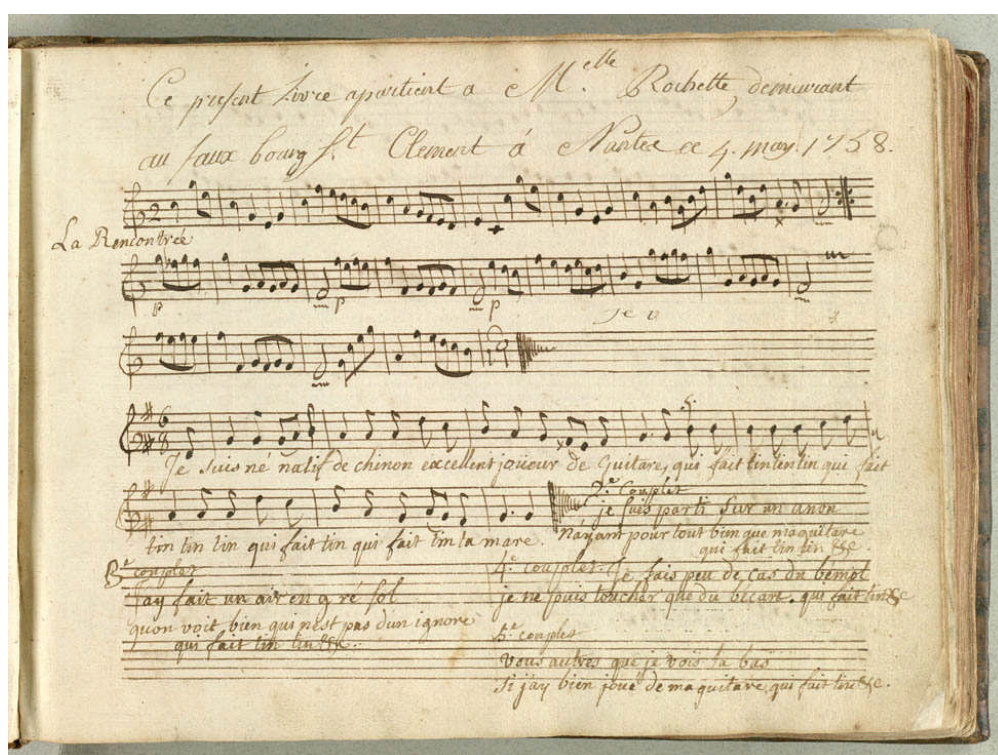 Ce present Livre apartient a M.elle Rochette, demeurant
au faux bourg St Clement á Nantes ce 4. may. 1758.
La Rencontrée
p p p
Je Suis né natif de chinon excellent joüeur de Guitare, qui fait tin tin tin qui fait
tin tin tin qui fait tin qui fait tin ta mare.
2.e Couplet
je suis parti Sur un anon
N'ayant pour tout bien que ma guitare
qui fait tin tin &c.
3.e couplet
J'ay fait un air en g ré sol
quon voit bien qui nest pas dun ignore
qui fait tin tin &c.
4.e couplet Je fais peu de cas du bémol
je ne puis toucher que du bécare. qui fait tin &c
5.e couplet
Vous autres que je vois la bas
Si j'ay bien joué de ma guitare, qui fait tin &c.